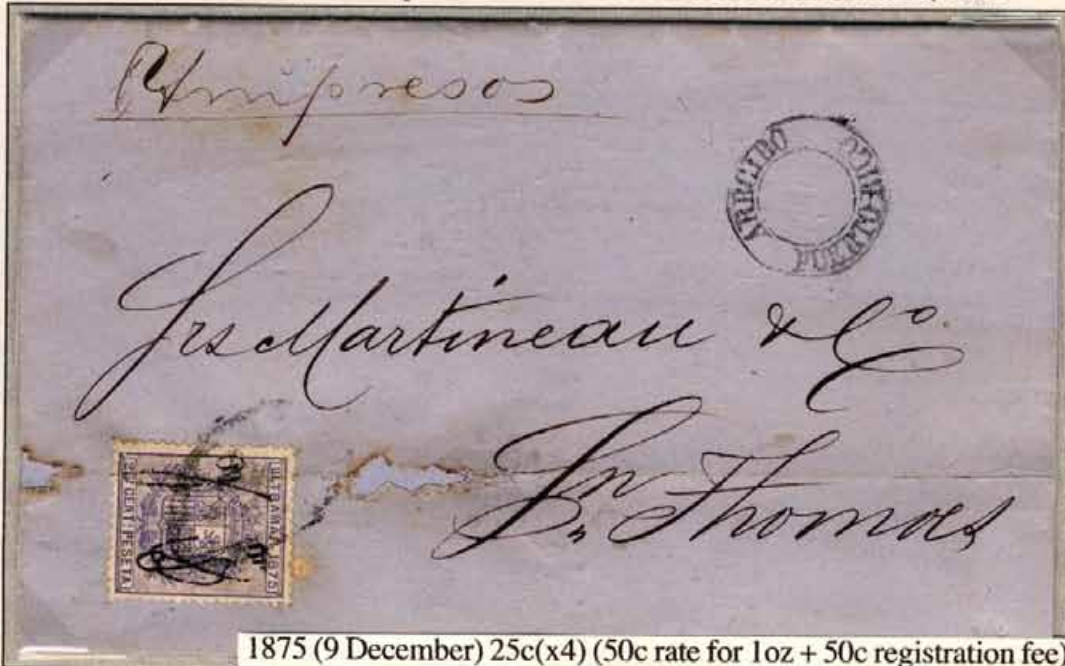 Impresos
ARECIBO
PUERTO-RICO
Srs Martineau & Co.
Sn Thomas
ULTRAMAR 1875
25 CENT. PESETA
1875 (9 December) 25c(x4) (50c rate for 1oz + 50c registration fee)